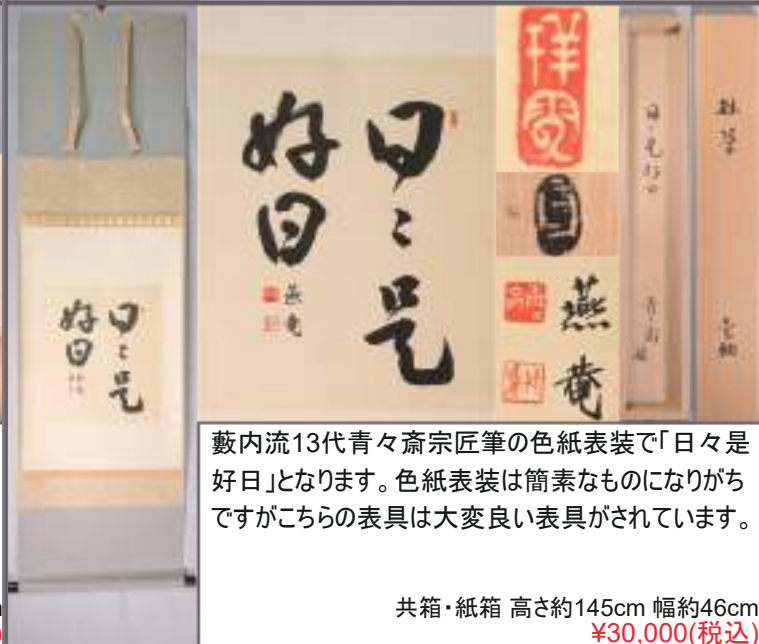 日々是
好日
燕庵
日々是
好日
燕庵
祥雲
燕
庵
日々是好日
藪内流13代青々斎宗匠筆の色紙表装で「日々是
好日」となります。色紙表装は簡素なものになりがち
ですがこちらの表具は大変良い表具がされています。
共箱・紙箱 高さ約145cm 幅約46cm
¥30,000(税込)